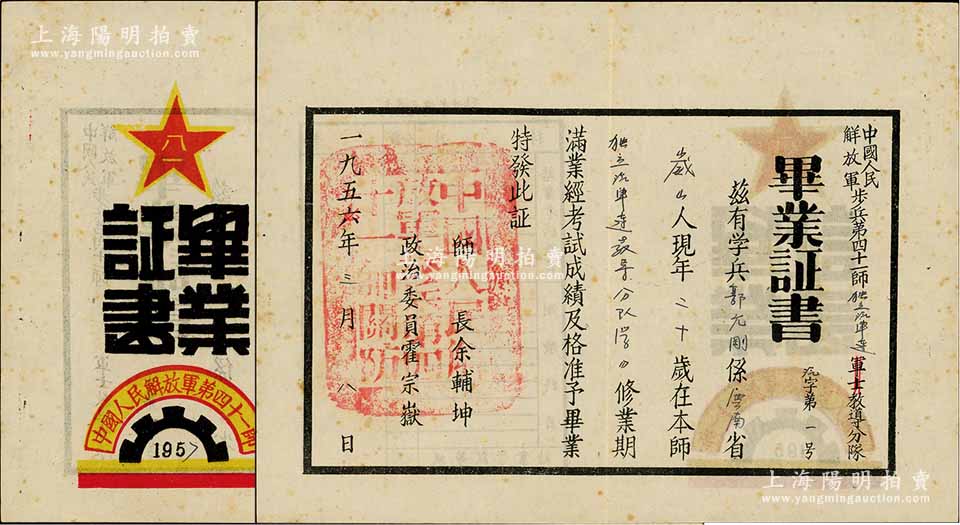 上海陽明拍賣
www.yangmingauction.com
八一
畢業
証書
中國人民解放軍第四十一師
195
中國人民
解放軍步兵第四十一師独立汽車連軍士教導分隊
畢業証書
汽字第一号
茲有学兵郭九剛係雲南省
人現年二十歲在本師
独立汽車連
分队学
修業期
滿業經考試成績及格准予畢業
特發此証
師長余輔坤
政治委員霍宗嶽
一九五六年三月八日
上海陽明拍賣
www.yangmingauction.com